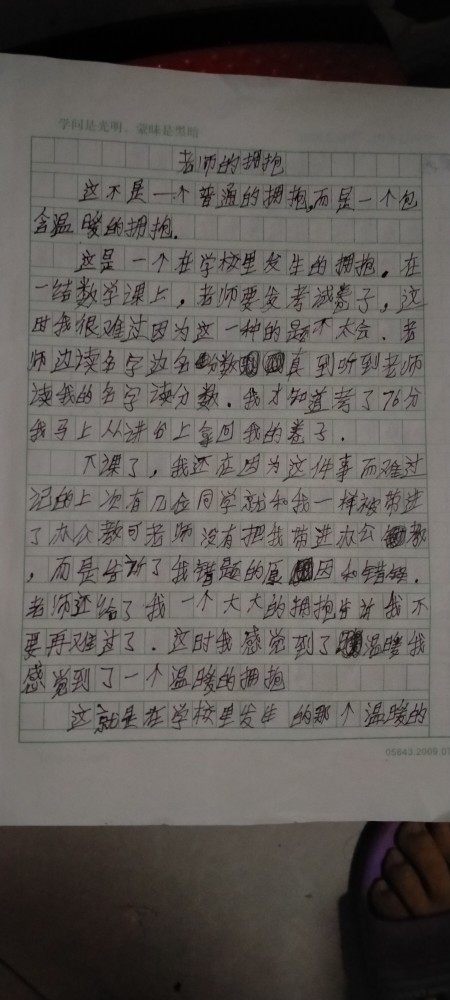 学问是光明，蒙昧是黑暗
老师的拥抱
这不是一个普通的拥抱,而是一个包
含温暖的拥抱.
这是一个在学校里发生的拥抱。在
一结数学课上，老师要发考诚卷子，这
时我很难过因为这一种的题不太会.老
师边读名字边名数真到听到老师
读我的名字读分数.我才知道考了76分
我马上从讲台上拿回我的卷子.
下课了，我还在因为这件事而难过
记的上次有几位同学就和我一样被带进
了办公教可老师没有把我带进办公教
，而是告斩了我错题的原因和错.
老师还给了我一个大大的拥抱告斩我不
要再难过了.这时我感觉到了温暖我
感觉到了一个温暖的拥抱
这就是在学校里发生的那个温暖的
05843.2009.0